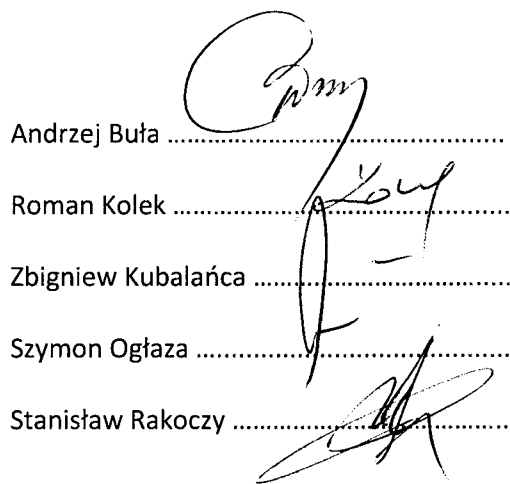 Andrzej Buła ................................................
Roman Kolek ................................................
Zbigniew Kubalańca .....................................
Szymon Ogłaza .............................................
Stanisław Rakoczy ........................................